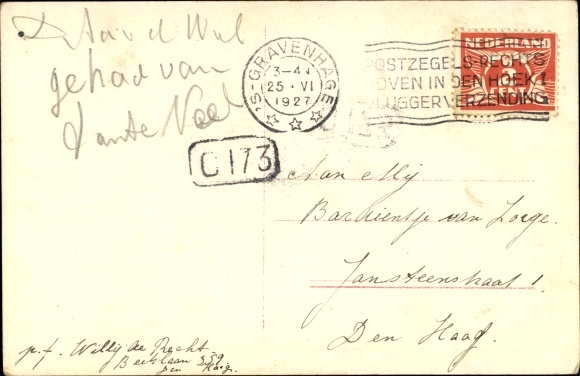 gehad van
Tante
'S-GRAVENHAGE
3-4
25 · VI
1927
POSTZEGELS RECHTS
BOVEN IN DEN HOEK!
VLUGGER VERZENDING
NEDERLAND
CENT
C 173
Aan Mej
Bardientje van Zorge.
Jan Steenstraat 1.
Den Haag.
p.f. Willy de
Beeklaan 339
Den Haag.